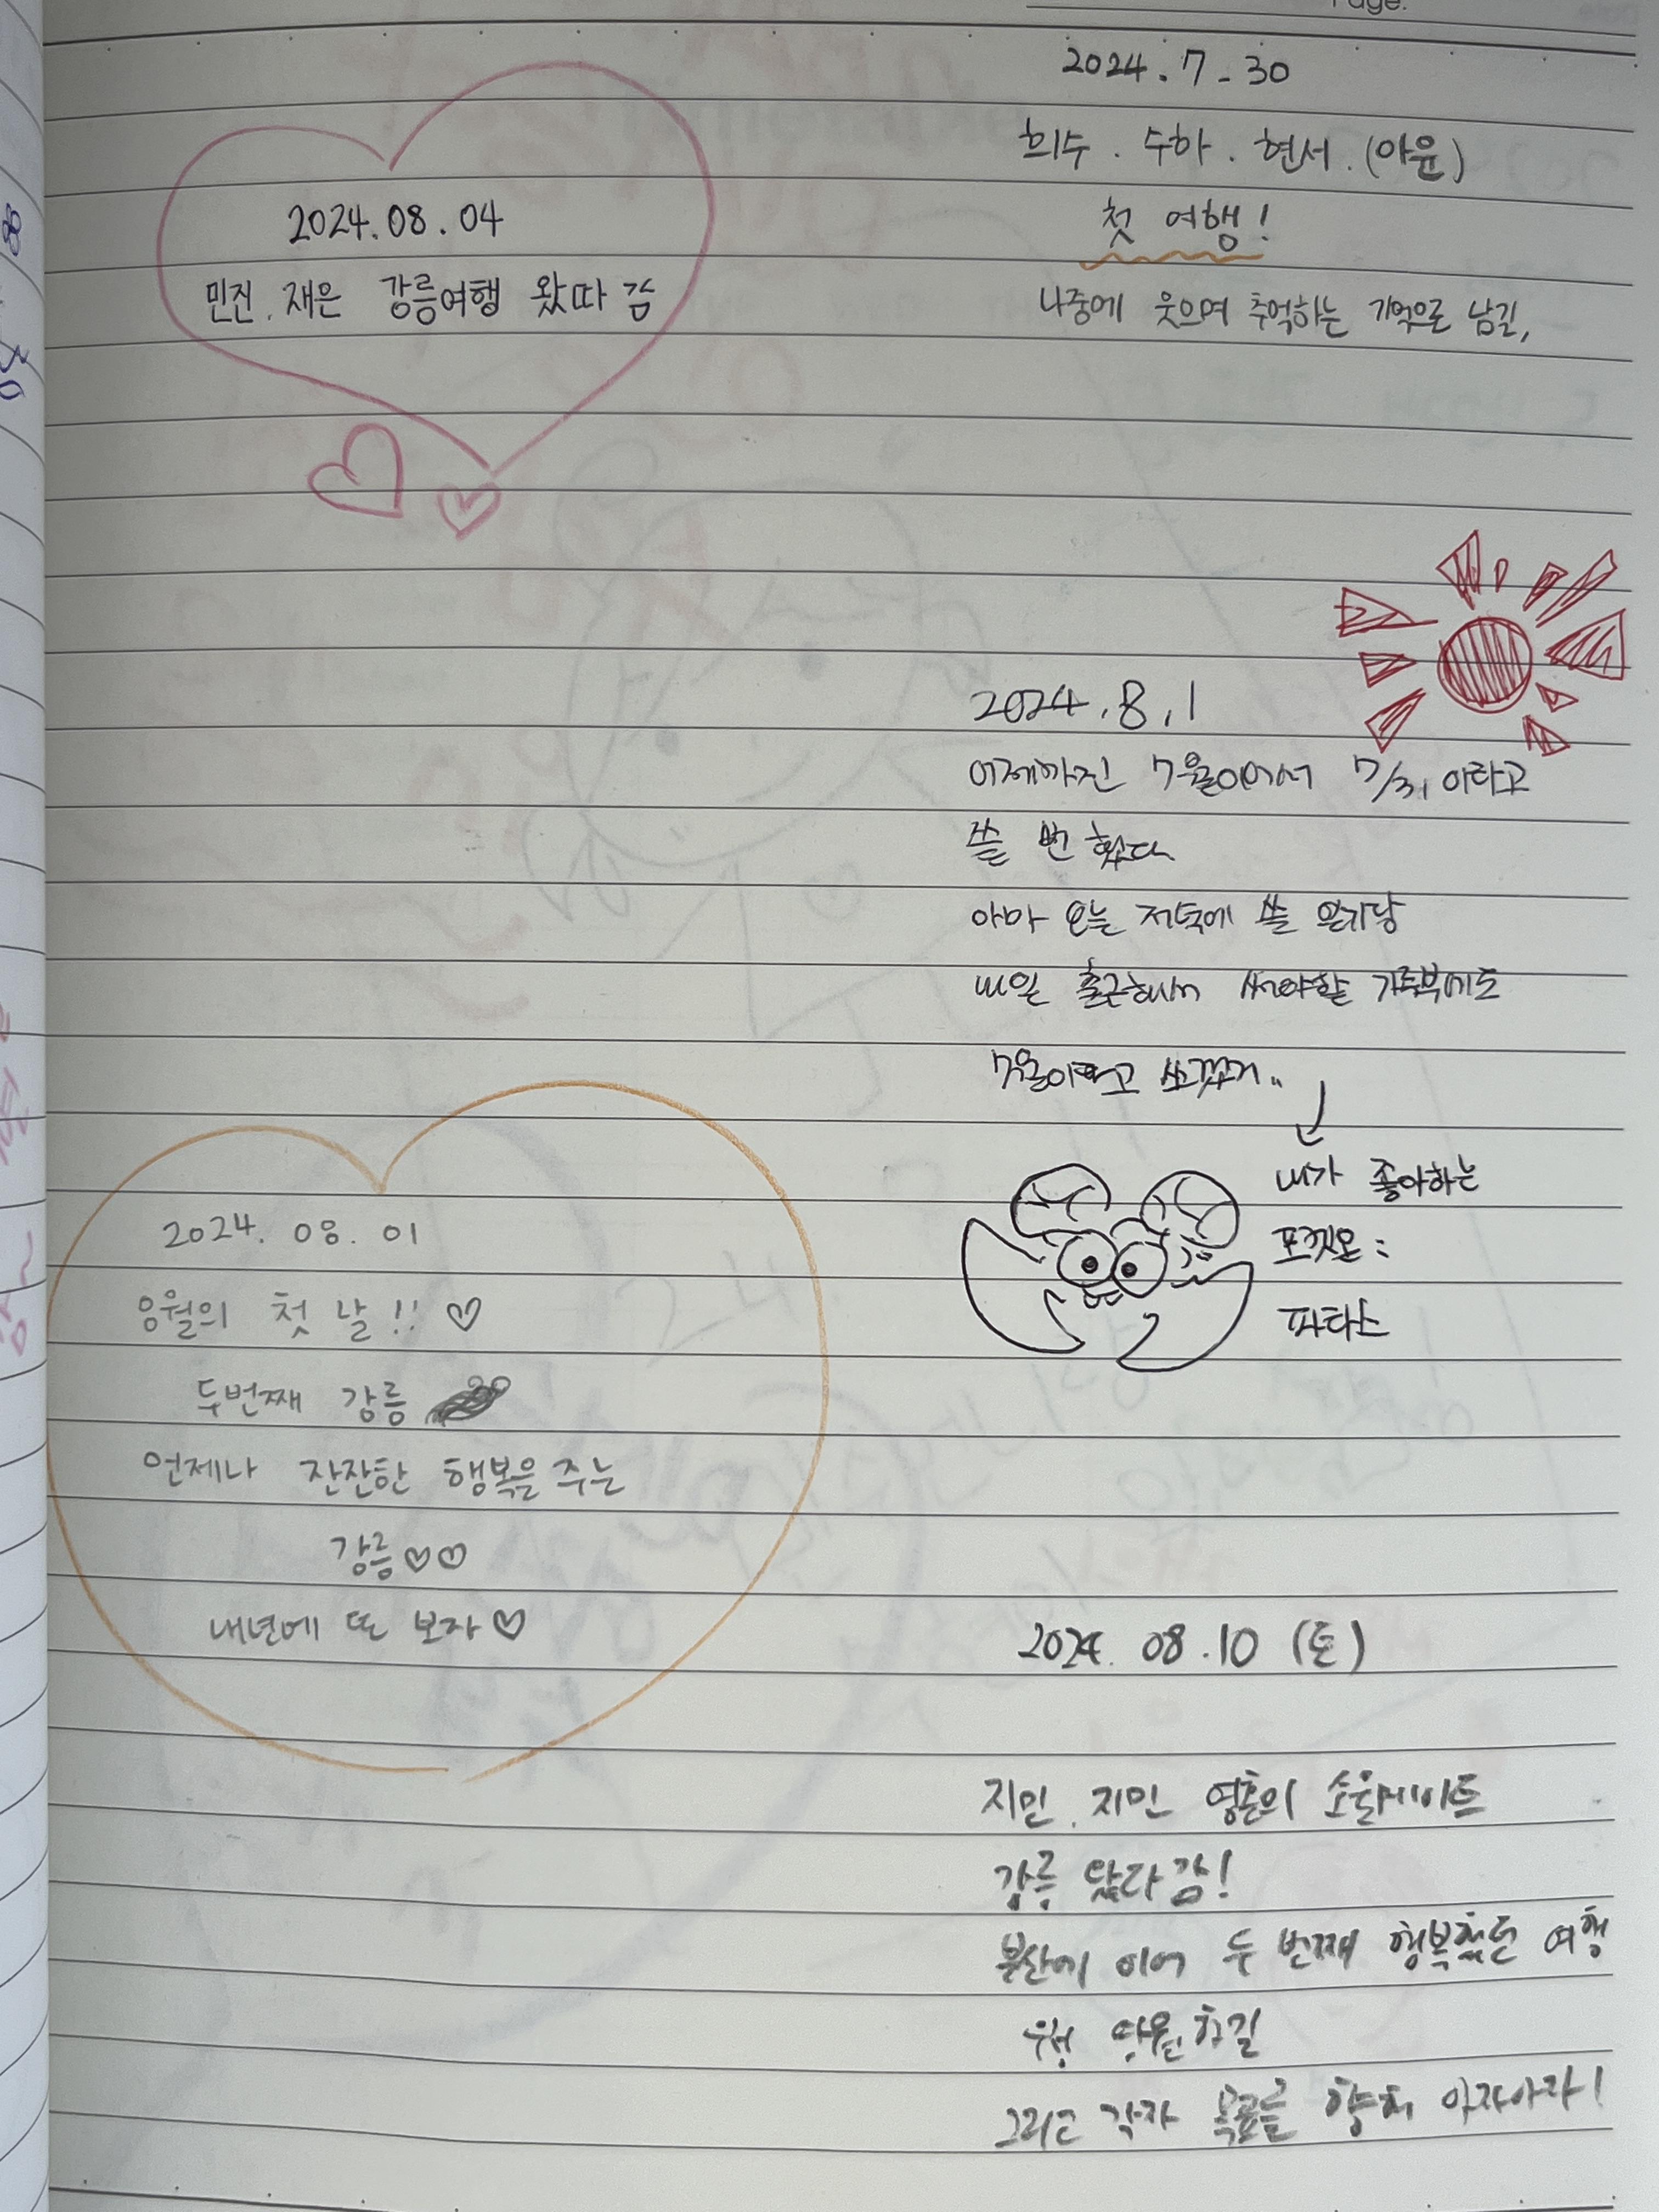 Page.
2024.08.04
민진. 재은 강릉여행 왔따 감
2024.7-30
희수. 수하. 현서. (아윤)
첫 여행!
나중에 웃으며 추억하는 기억으로 남길,
2024.8.1
어제까진 7월이어서 7/31 이라고
쓸 번 했다
아마 오늘 저녁에 쓸 일기랑
내일 출근해서 써야할 가족부에도
7월이라고 쓰겠지..
내가 좋아하는
포켓몬:
파타스
2024. 08. 01
8월의 첫 날!! ♡
두번째 강릉
언제나 잔잔한 행복을 주는
강릉♡♡
내년에 또 보자♡
2024. 08.10 (토)
지민. 지민 영혼의 소울메이트
강릉 왔다감!
부산에 이어 두 번째 행복했던 여행
우정 영원하길
그리고 각자 목표를 향해 아자아자!